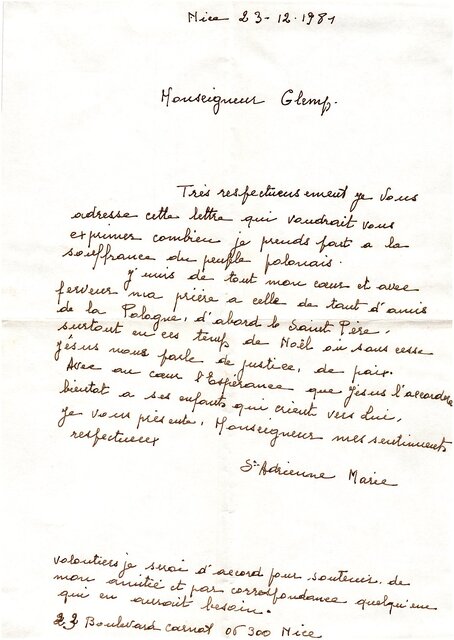 Nice 23-12-1981
Monseigneur Glemp.
Très respectueusement je vous
adresse cette lettre qui vaudrait vous
exprimer combien je prends part a la
souffrance du peuple polonais.
J'unis de tout mon cœur et avec
ferveur ma prière a celle de tant d'amis
de la Pologne, d'abord le Saint Père,
surtout en ces temps de Noël où sans cesse
Jésus nous parle de justice, de paix.
Avec au cœur l'Espérance que Jésus l'accordera
bientot a ses enfants qui crient vers Lui,
je vous présente, Monseigneur mes sentiments
respectueux
Sr Adrienne Marie
volontiers je serai d'accord pour soutenir, de
mon amitié et par correspondance quelqu'un
qui en aurait besoin.
23 Boulevard Carnot 06300 Nice